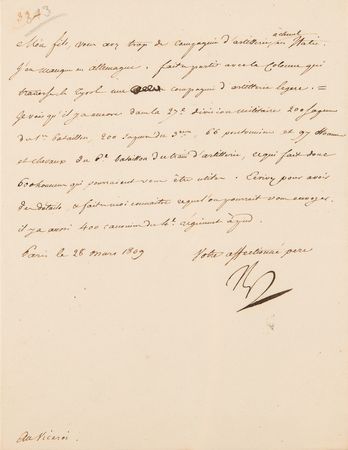 3343
Mon fils, vous avez trop de compagnies d'artillerie à cheval en Italie.
J'en manque en allemagne. faites partir avec la Colonne qui
traverse le Tyrol une compagnie d'artillerie legere. =
Je vois qu'il y a encore dans la 27e division militaire 200 sapeurs
du 1er bataillon, 200 sapeurs du 3eme, 66 pontonniers et 97 hommes
et chevaux du 6e bataillon du train d'artillerie, ce qui fait donc
600 hommes qui pourraient vous être utiles. Ecrivez pour avoir
des détails & faites moi connaitre ce qu'on pourrait vous envoyer.
il y a aussi 400 canonniers du 4e régiment à pied.
Paris le 28 mars 1809
Votre affectionné pere
Np
Au Viceroi